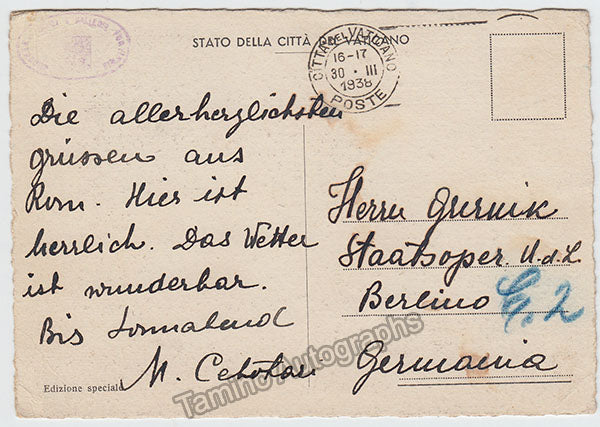 STATO DELLA CITTÀ DEL VATICANO
CITTÀ DEL VATICANO
16-17
30 · III
1938
POSTE
Die allerherzlichsten
grüssen aus
Rom. Hier ist
herrlich. Das Wetter
ist wunderbar.
Bis Sonnabend
M. Cebotari
Herrn Gurnik
Staatsoper U.d.L.
Berlino
Germania
Edizione speciale
Tamino Autographs